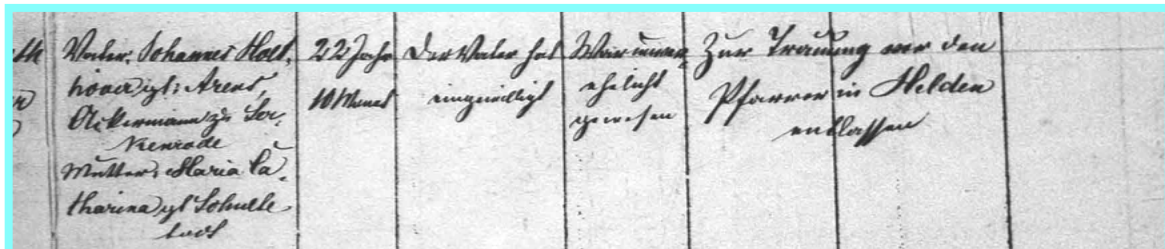 Vater: Johannes Hoet,
höver gt: Arens,
Ackermann zu Ser,
kenrode
Mutter: Maria Ca,
tharina gt Schulte
todt
22 Jahr
10 Monat
Der Vater hat
eingewilligt
War unver,
ehelicht
gewesen
Zur Trauung vor den
Pfarrer in Helden
entlassen